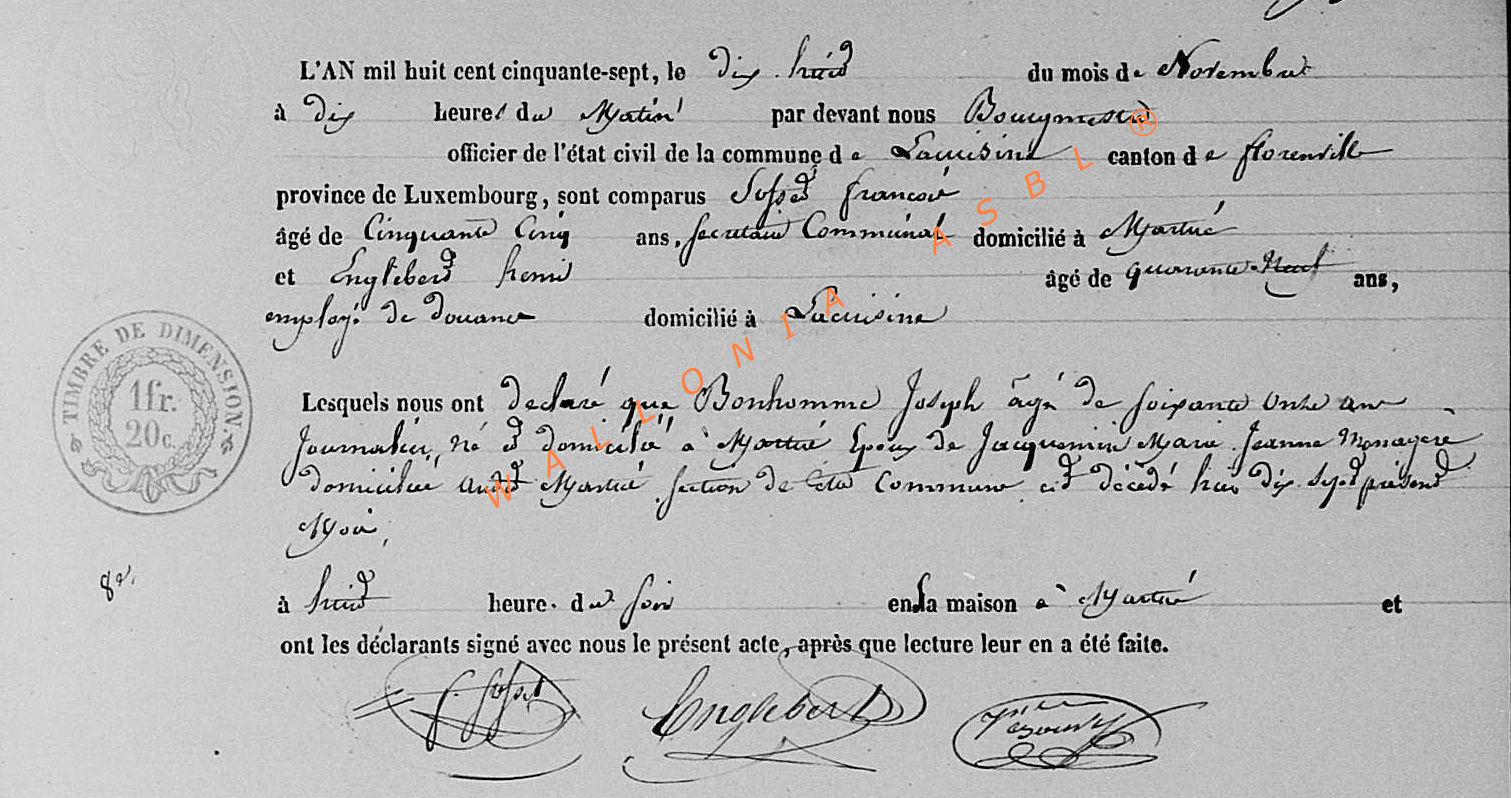 L'AN mil huit cent cinquante-sept, le dix huit du mois de Novembre
à dix heures du Matin par devant nous Bourgmestre
officier de l'état civil de la commune de Lacuisine canton de florenville
province de Luxembourg, sont comparus Sosset francois
âgé de Cinquante Cinq ans, secretaire Communal domicilié à Martué
et Englebert henri âgé de quarante Neuf ans,
employé de douane domicilié à Lacuisine
TIMBRE DE DIMENSION
1 fr.
20 c.
Lesquels nous ont declaré que Bonhomme Joseph âgé de soixante onze ans
Journalier, né et domicilié à Martué Epoux de Jacquemin Marie Jeanne Menagere
domiciliée audit Martué section de cette Commune est décédé hier dix sept présent
Mois,
8e.
à huit heure. du soir en sa maison à Martué et
ont les déclarants signé avec nous le présent acte, après que lecture leur en a été faite.
f. Sosset Englebert
WALLONIA ASBL ®